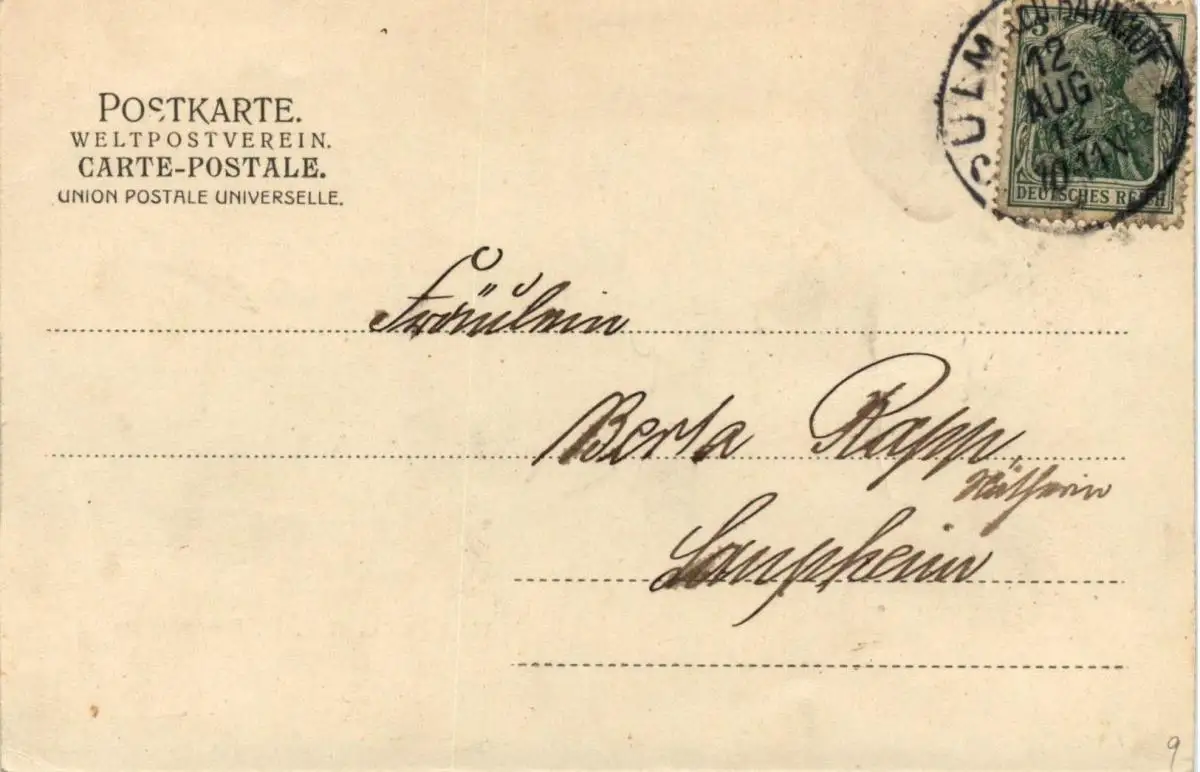 POSTKARTE.
WELTPOSTVEREIN.
CARTE-POSTALE.
UNION POSTALE UNIVERSELLE.
ULM
BAHNHOF
12
AUG
12
10-11V
5
DEUTSCHES REICH
Fräulein
Berta Rapp,
Näherin
Laupheim
9